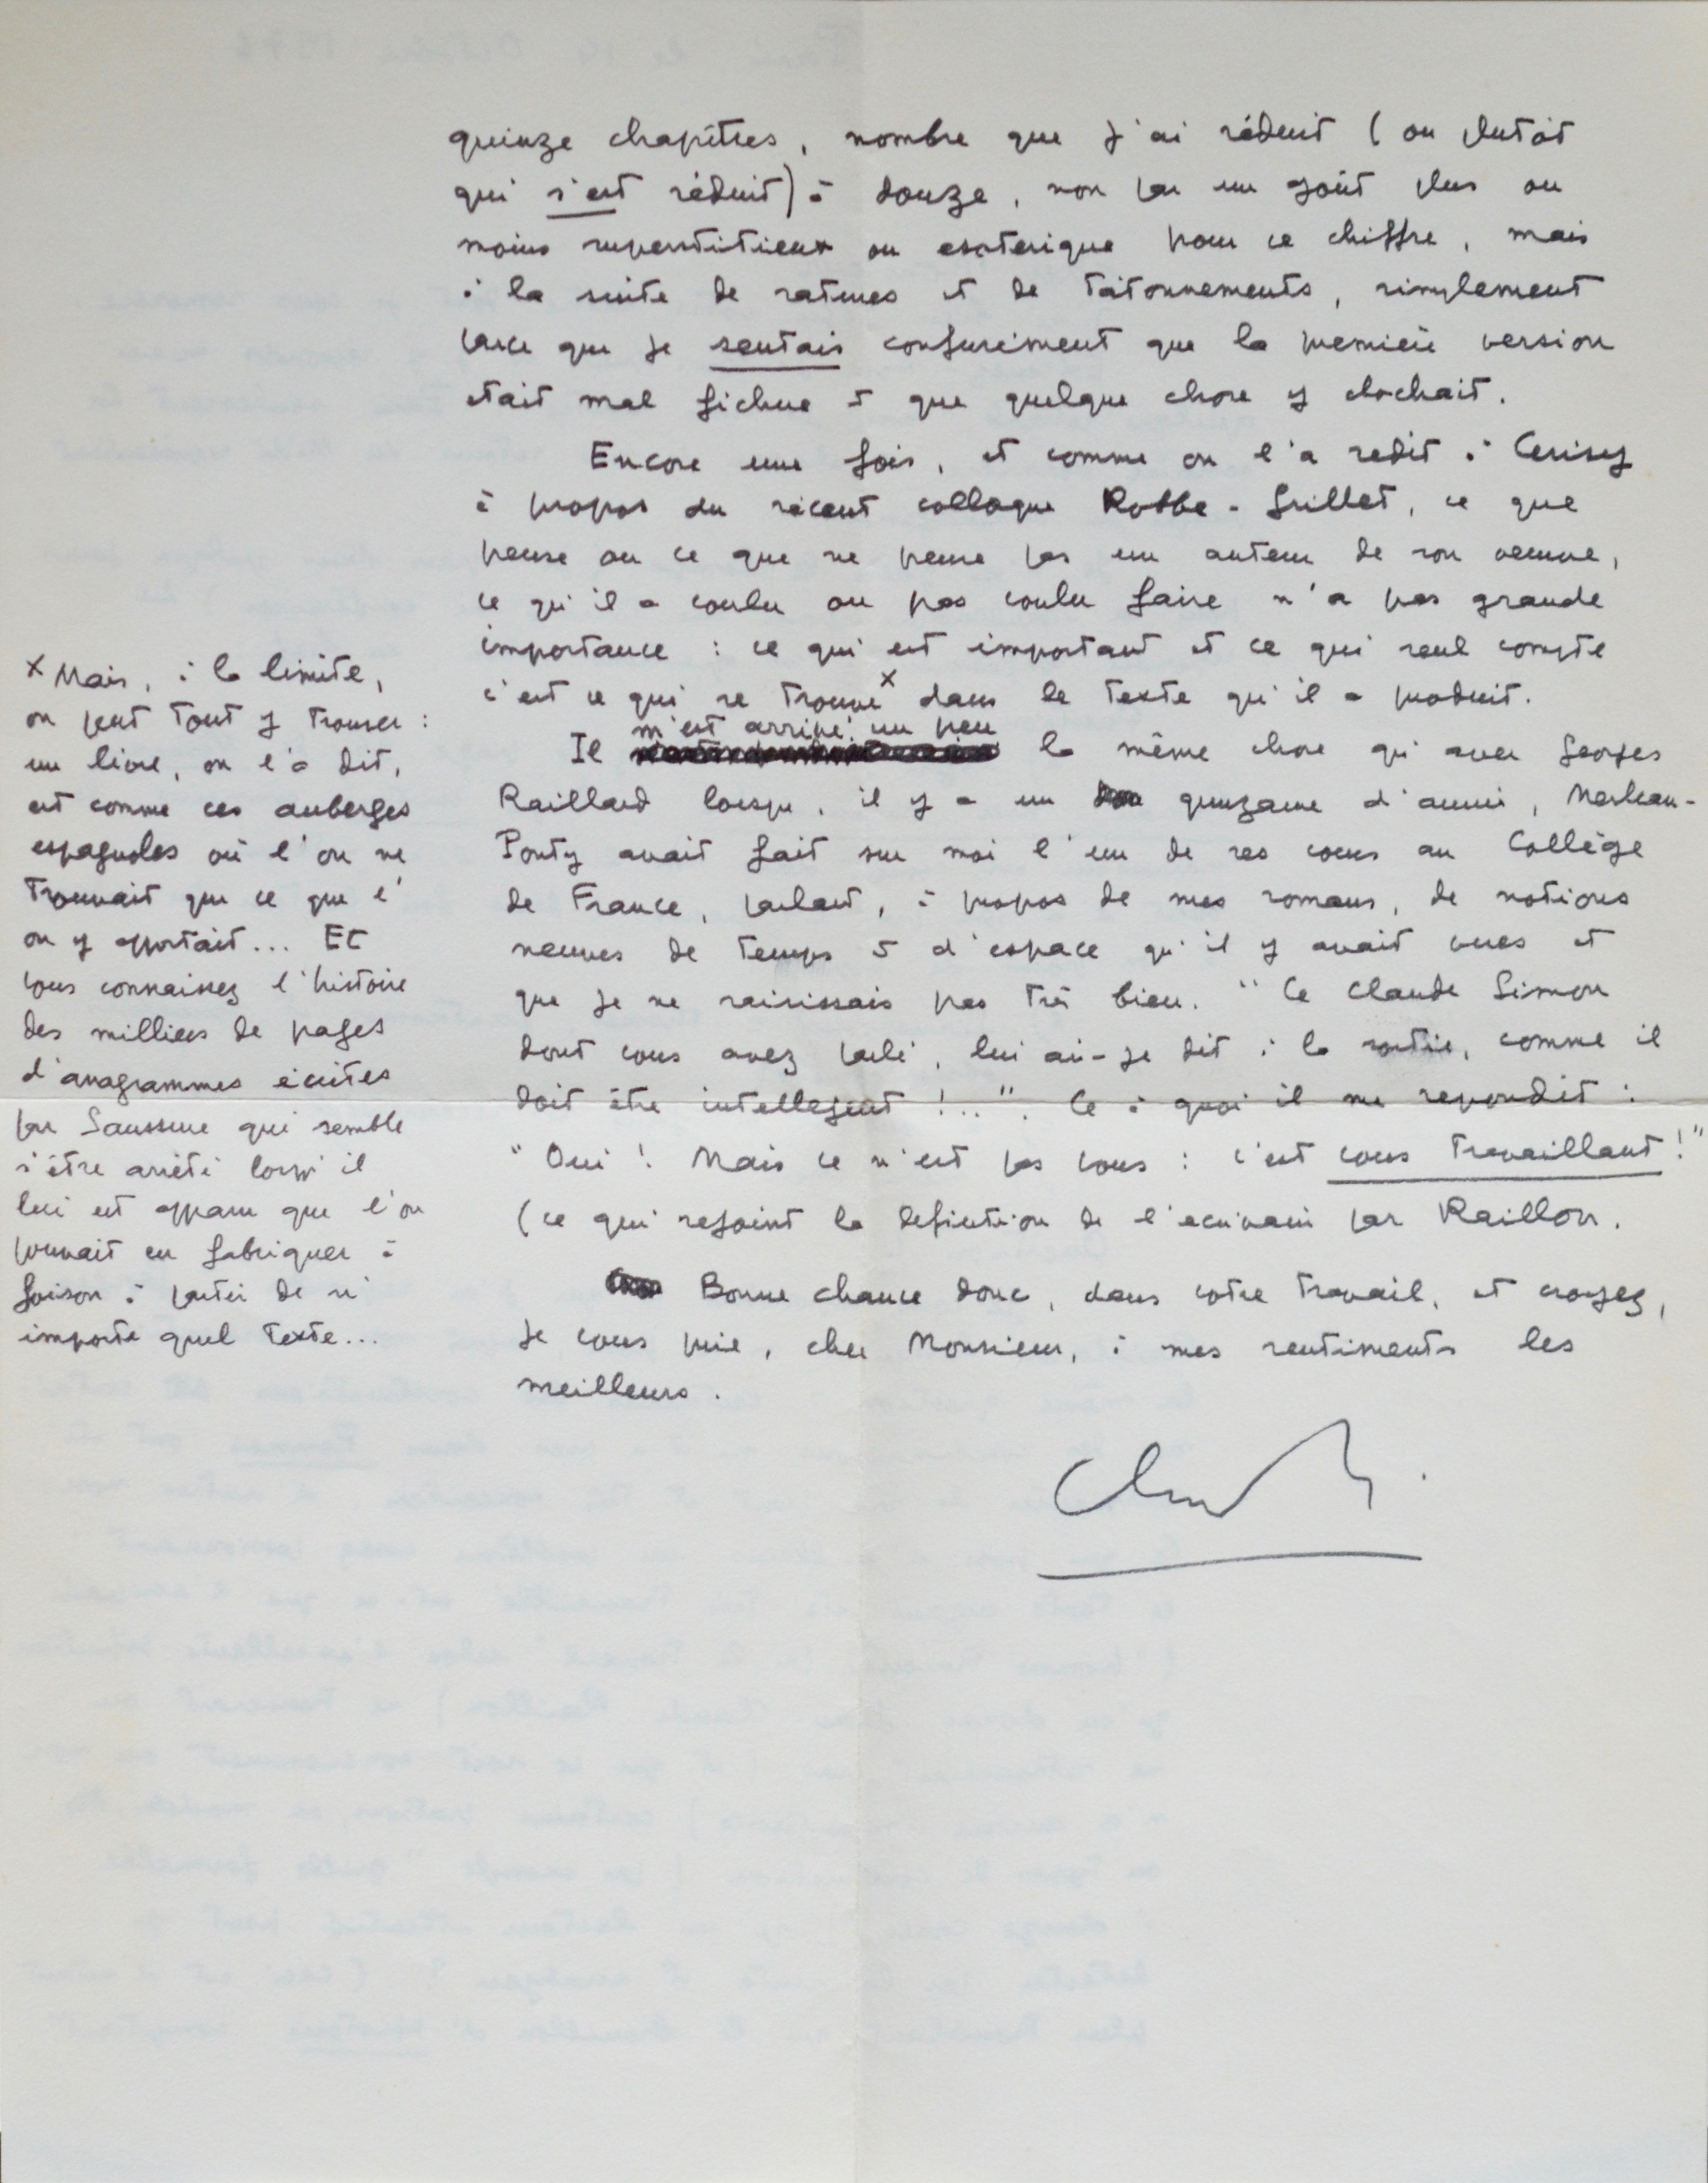 quinze chapîtres, nombre que j'ai réduit (ou plutôt
qui s'est réduit) à douze, non par un goût plus ou
moins superstitieux ou esoterique pour ce chiffre, mais
à la suite de ratures et de tâtonnements, simplement
parce que je sentais confusément que la première version
etait mal fichue et que quelque chose y clochait.
Encore une fois, et comme on l'a redit à Cerisy
à propos du récent colloque Robbe-Grillet, ce que
pense ou ce que ne pense pas un auteur de son oeuvre,
ce qu'il a voulu ou pas voulu faire n'a pas grande
importance : ce qui est important et ce qui seul compte
c'est ce qui se trouve x dans le texte qu'il a produit.
Il m'est arrivé un peu la même chose qu'avec Georges
Raillard lorsque, il y a une quinzaine d'années, Merleau-
Ponty avait fait sur moi l'un de ses cours au Collège
de France, parlant, à propos de mes romans, de notions
neuves de temps et d'espace qu'il y avait vues et
que je ne saisissais pas très bien. "Ce Claude Simon
dont vous avez parlé, lui ai-je dit à la sortie, comme il
doit être intellegent !..". Ce à quoi il me repondit :
"Oui ! Mais ce n'est pas vous : c'est vous travaillant !"
(ce qui rejoint la definition de l'ecrivain par Raillon.
Bonne chance donc, dans votre travail, et croyez,
je vous prie, cher Monsieur, à mes sentiments les
meilleurs.
x Mais, à la limite,
on peut tout y trouver :
un livre, on l'a dit,
est comme ces auberges
espagnoles où l'on ne
trouvait que ce que l'
on y apportait... Et
vous connaissez l'histoire
des milliers de pages
d'anagrammes écrites
par Saussure qui semble
s'être arrêté lorsqu'il
lui est apparu que l'on
pouvait en fabriquer à
foison à partir de n'
importe quel texte...